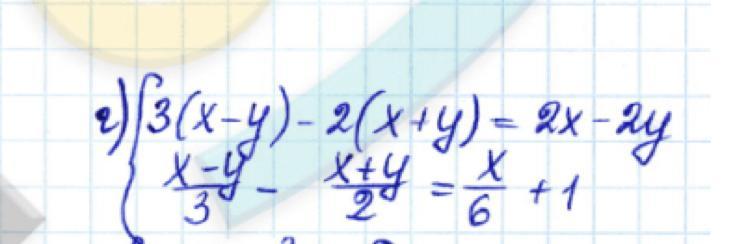 г) { 3(x-y) - 2(x+y) = 2x - 2y
(x-y)/3 - (x+y)/2 = x/6 + 1